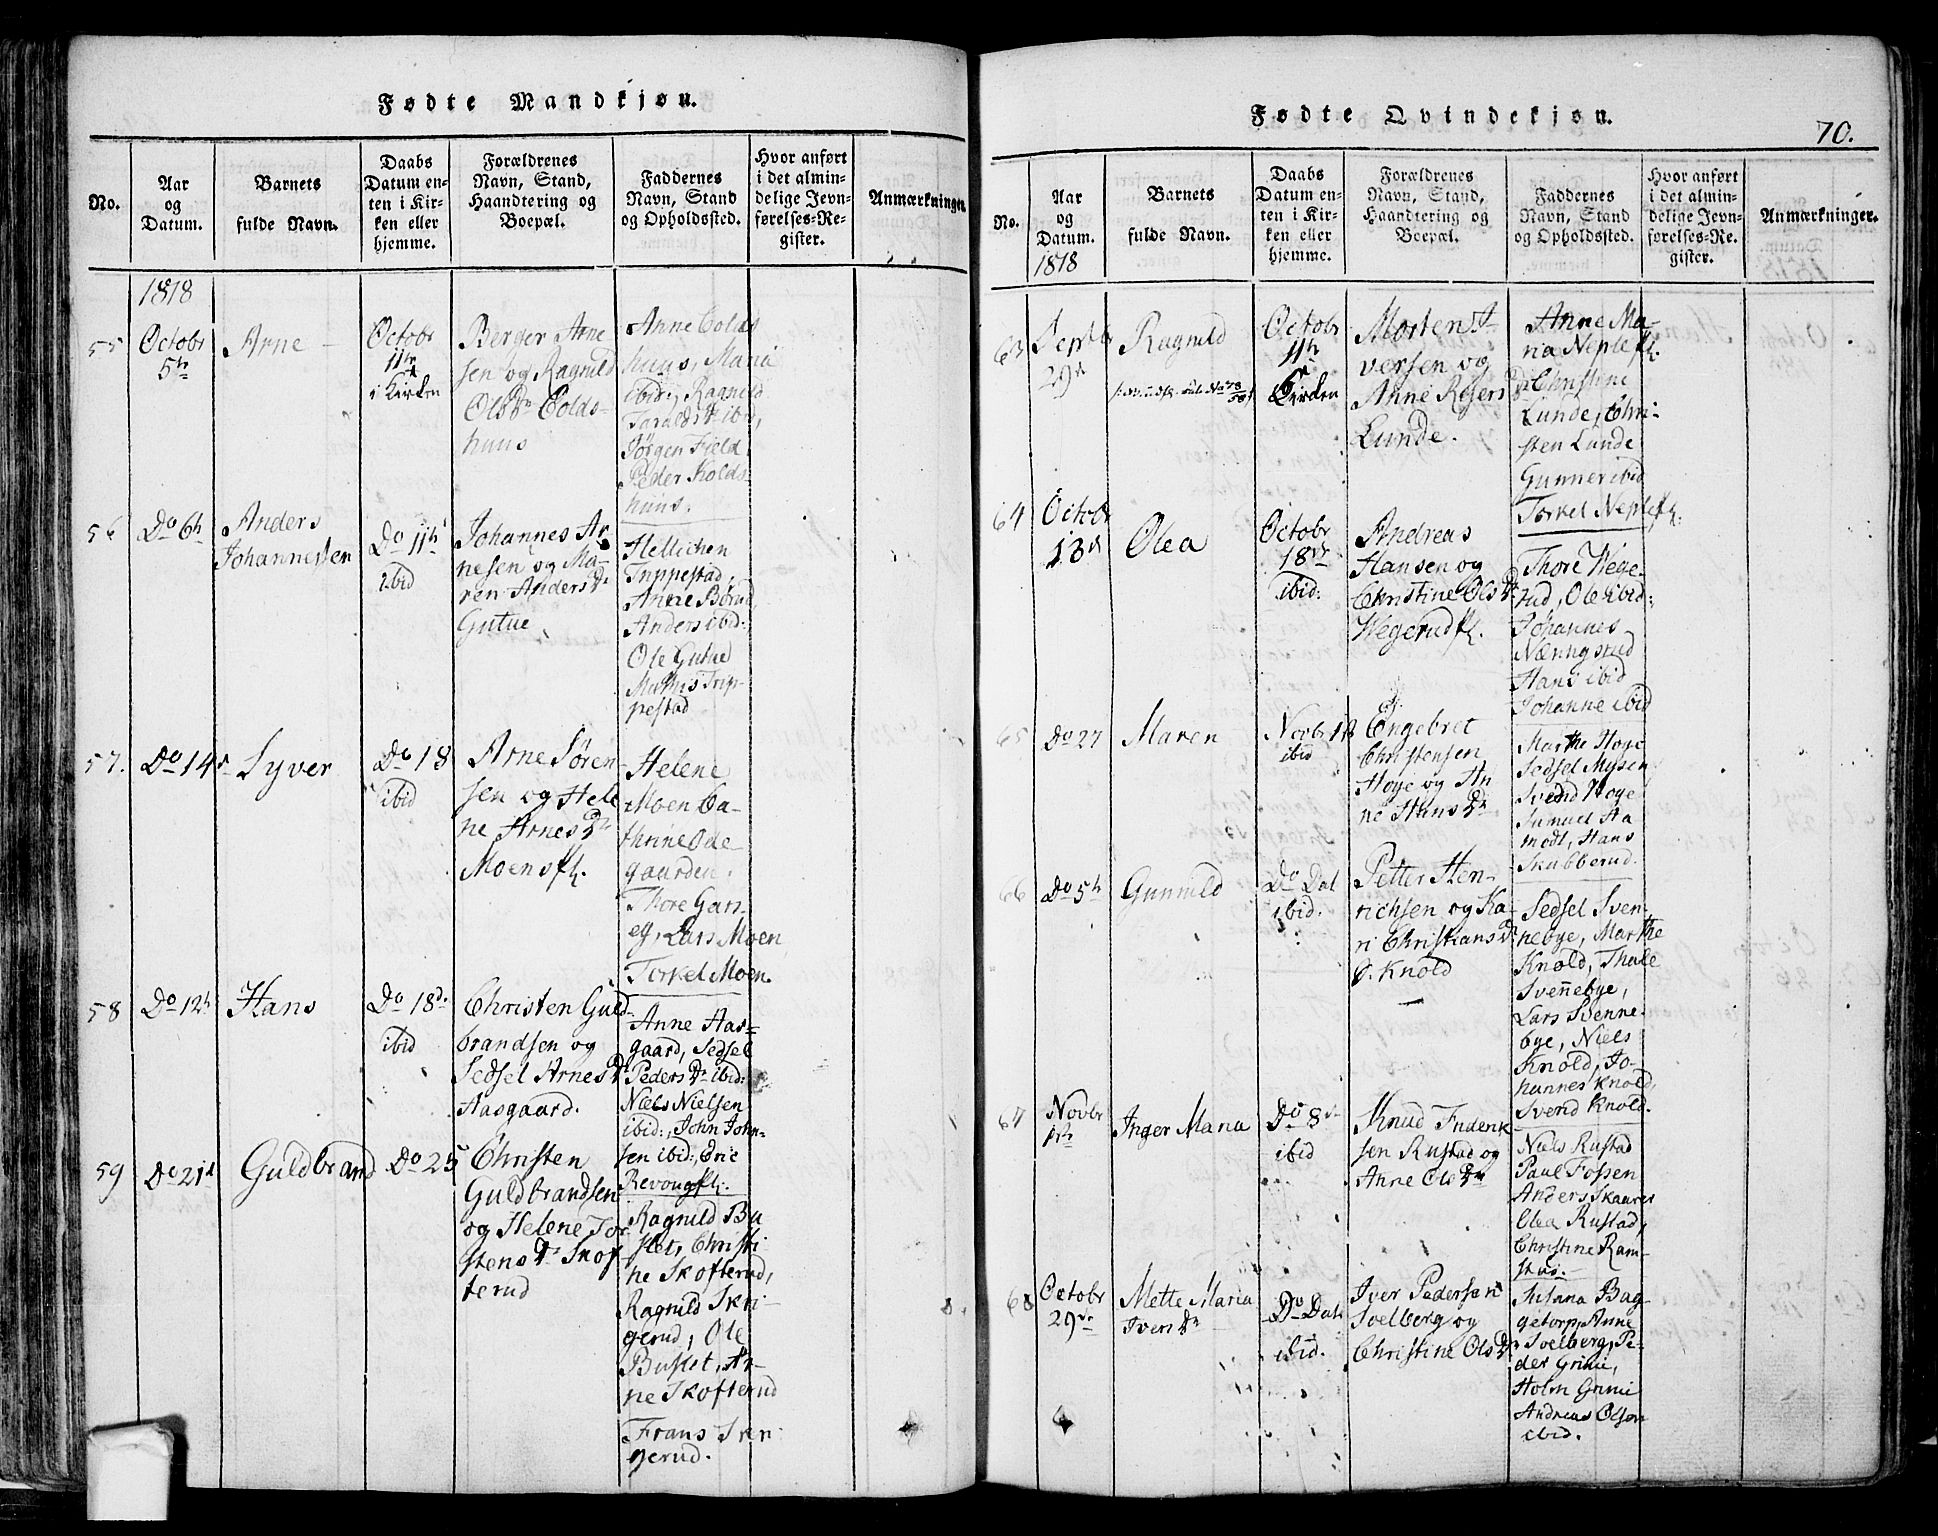 Fødte Mandkjøn.
No.
Aar
og
Datum.
Barnets
fulde Navn.
Daabs
Datum en-
ten i Kir-
ken eller
hjemme.
Forældrenes
Navn, Stand,
Haandtering og
Boepæl.
Faddernes
Navn, Stand
og Opholdssted.
Hvor anført
i det almin-
delige Jevn-
førelses-Re-
gister.
Anmærkninger.
1818
55
Octobr
5te
Arne
Octobr
11te
i Kirken
Berger Arne
sen og Ragnild
Ols Dr Colds-
huus
Anne Colds
huus, Maria
ibid:, Ragnild
Taralds Dr ibid,
Jørgen Field
Peder Kolds-
huus.
56
Do 6te
Anders
Johannessen
Do 11te
ibid
Johannes Ar
nesen og Ma-
ren Anders Dr
Gutue
Hellichen
Trippestad,
Anne Børud
Anders ibid:,
Ole Gutue
Mathis Trip-
pestad
57.
Do 14de
Syver
Do 18
ibid
Arne Søren
sen og Hele
ne Arnes Dr
Moens fl.
Helene
Moen Ca-
thrine Ode-
gaarden.
Thore Gars-
eg, Lars Moen
Torkel Moen.
58
Do 12te
Hans
Do 18d.
ibid
Christen Guld-
brandsen og
Sedsel Arnes Dr
Aasgaard.
Anne Aas-
gaard, Sedsel
Peders Dr ibid:
Niels Nielsen
ibid:, John John-
sen ibid:, Eric
Revoug fl.
59
Do 21d
Guldbrand
Do 25
Christen
Guldbrandsen
og Helene Tor
stens Dr Skof-
terud
Ragnild Bu
sket, Christi-
ne Skofterud,
Ragnild Skri-
gerud, Ole
Busket, Ar-
ne Skofterud
Frans Skri-
gerud.
Fødte Qvindekjøn.
70.
No.
Aar
og
Datum.
1818
Barnets
fulde Navn.
Daabs
Datum en-
ten i Kir-
ken eller
hjemme.
Forældrenes
Navn, Stand,
Haandtering og
Boepæl.
Faddernes
Navn, Stand
og Opholdssted.
Hvor anført
i det almin-
delige Jevn-
førelses-Re-
gister.
Anmærkninger.
63
Septbr
29d
Ragnild
Octobr
11te
Kirken
Morten I-
versen og
Anne Rejers Dr
Lunde.
Anne Ma-
ria Neple fl.
Christine
Lunde, Chri-
sten Lunde
Gunner ibid
Torkel Neple fl.
64
Octobr
13d
Olea
Octobr
18de
ibid:
Andreas
Hansen og
Christine Ols Dr
Wegerud fl.
Thore Wege-
rud, Ole ibid:,
Johannes
Nænngstud
Hans ibid
Johanne ibid
65
Do 27
Maren
Novbr 1
ibid
Engebret
Christensen
Hoye og An
ne Hans Dr
Marthe Hoye
Sedsel Mysen,
Svend Hoye
Samuel Ha
modt, Hans
Skubberud.
66
Do 5te
Gunnild
Do Dat
ibid.
Petter Hen-
richsen og Ka-
ri Christians Dr
Knold
Sedsel Sven-
nebye, Marthe
Knold, Thale
Svennebye,
Lars Svenne-
bye, Niels
Knold, Jo-
hannes Knold,
Svend Knold.
67
Novbr
1te
Inger Maria
Do 8d
ibid
Knud Friderik
sen Rustad og
Anne Ols Dr
Niels Rustad
Paul Fossen
Anders Skaarer
Olea Rustad,
Christine Ram-
stad.
68
Octobr
29de
Mette Maria
Ivers Dr
Do Dat
ibid.
Iver Pedersen
Solberg og
Christine Ols Dr
Susana Bag-
getorp, Anne
Solberg, Pe-
der Grini,
Holm Grini
Andreas Olsen
ibid.